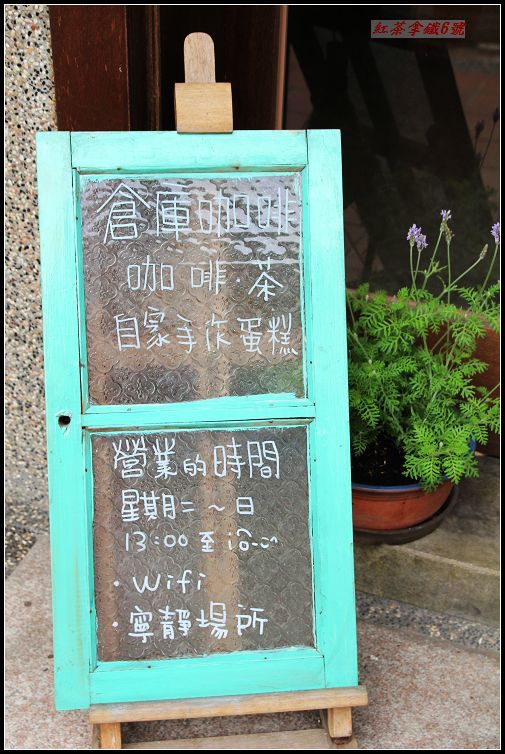 紅茶拿鐵6號
倉庫咖啡
咖啡·茶
自家手作蛋糕
營業的時間
星期二~日
13:00至
·Wifi
·寧靜場所